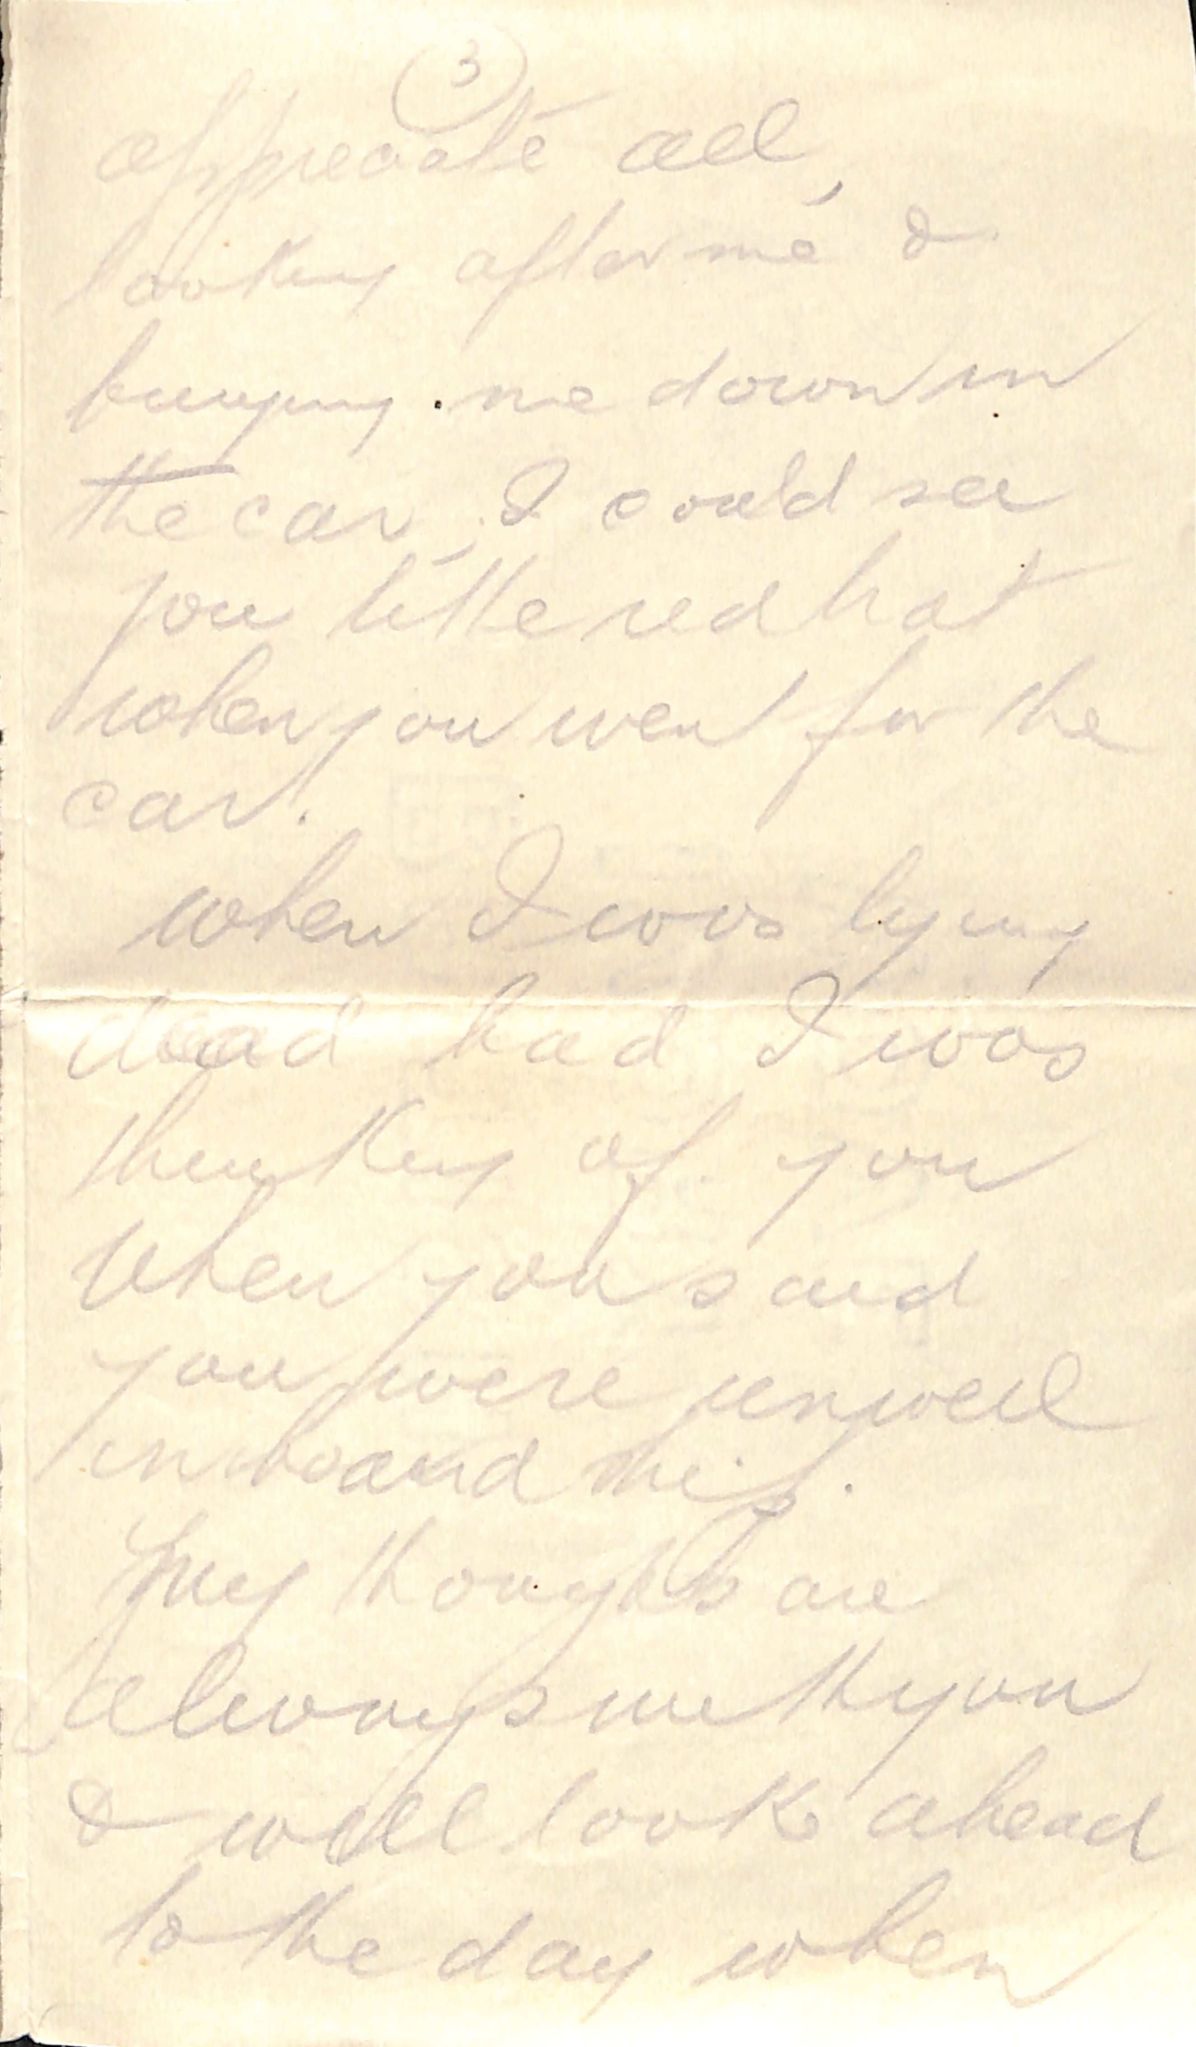 (3)
appreciate all,
looking after me &
bringing me down in
the car, I could see
you little red hat
when you wen for the
car.
when I was lying
dead bad I was
thinking of you
when you said
you were unwell
on board ship.
My thoughts are
always with you
& will look ahead
to the day when